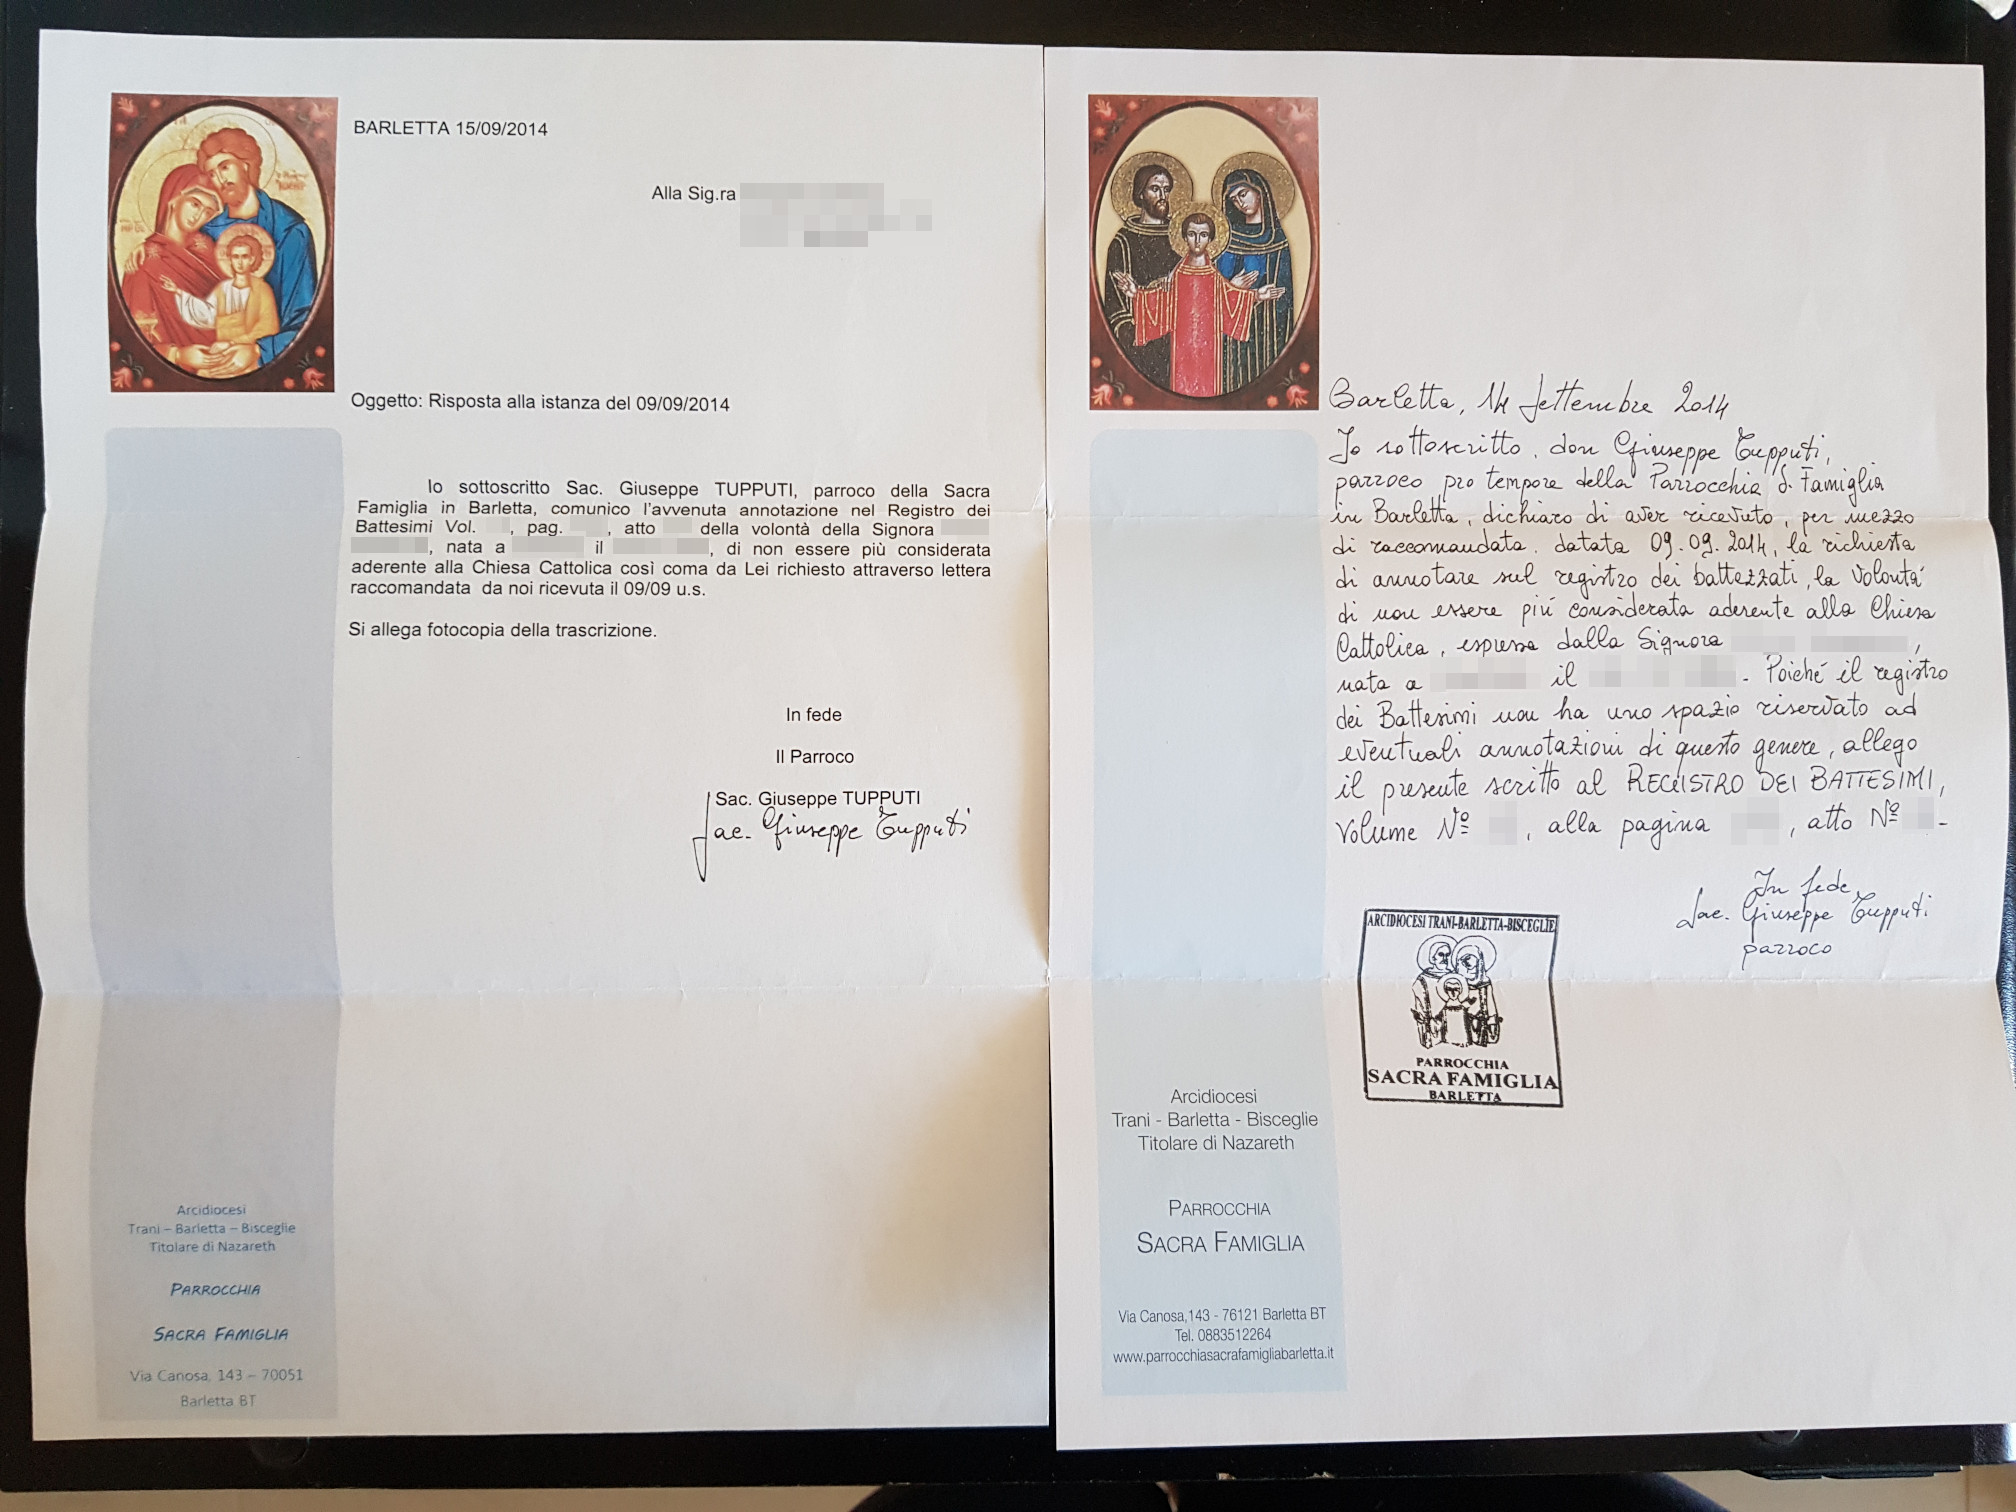 BARLETTA 15/09/2014
Alla Sig.ra
Oggetto: Risposta alla istanza del 09/09/2014
Io sottoscritto Sac. Giuseppe TUPPUTI, parroco della Sacra
Famiglia in Barletta, comunico l'avvenuta annotazione nel Registro dei
Battesimi Vol. , pag. , atto della volontà della Signora
, nata a il , di non essere più considerata
aderente alla Chiesa Cattolica così coma da Lei richiesto attraverso lettera
raccomandata da noi ricevuta il 09/09 u.s.
Si allega fotocopia della trascrizione.
In fede
Il Parroco
Sac. Giuseppe TUPPUTI
Sac. Giuseppe Tupputi
Arcidiocesi
Trani – Barletta – Bisceglie
Titolare di Nazareth
PARROCCHIA
SACRA FAMIGLIA
Via Canosa, 143 – 70051
Barletta BT
Barletta, 14 Settembre 2014
Io sottoscritto, don Giuseppe Tupputi,
parroco pro tempore della Parrocchia S. Famiglia
in Barletta, dichiaro di aver ricevuto, per mezzo
di raccomandata datata 09.09.2014, la richiesta
di annotare sul registro dei battezzati, la volontà
di non essere più considerata aderente alla Chiesa
Cattolica, espressa dalla Signora ,
nata a il . Poiché il registro
dei Battesimi non ha uno spazio riservato ad
eventuali annotazioni di questo genere, allego
il presente scritto al REGISTRO DEI BATTESIMI,
Volume Nº , alla pagina , atto Nº .
In fede,
Sac. Giuseppe Tupputi
parroco
ARCIDIOCESI TRANI-BARLETTA-BISCEGLIE
PARROCCHIA
SACRA FAMIGLIA
BARLETTA
Arcidiocesi
Trani - Barletta - Bisceglie
Titolare di Nazareth
PARROCCHIA
SACRA FAMIGLIA
Via Canosa,143 - 76121 Barletta BT
Tel. 0883512264
www.parrocchiasacrafamigliabarletta.it